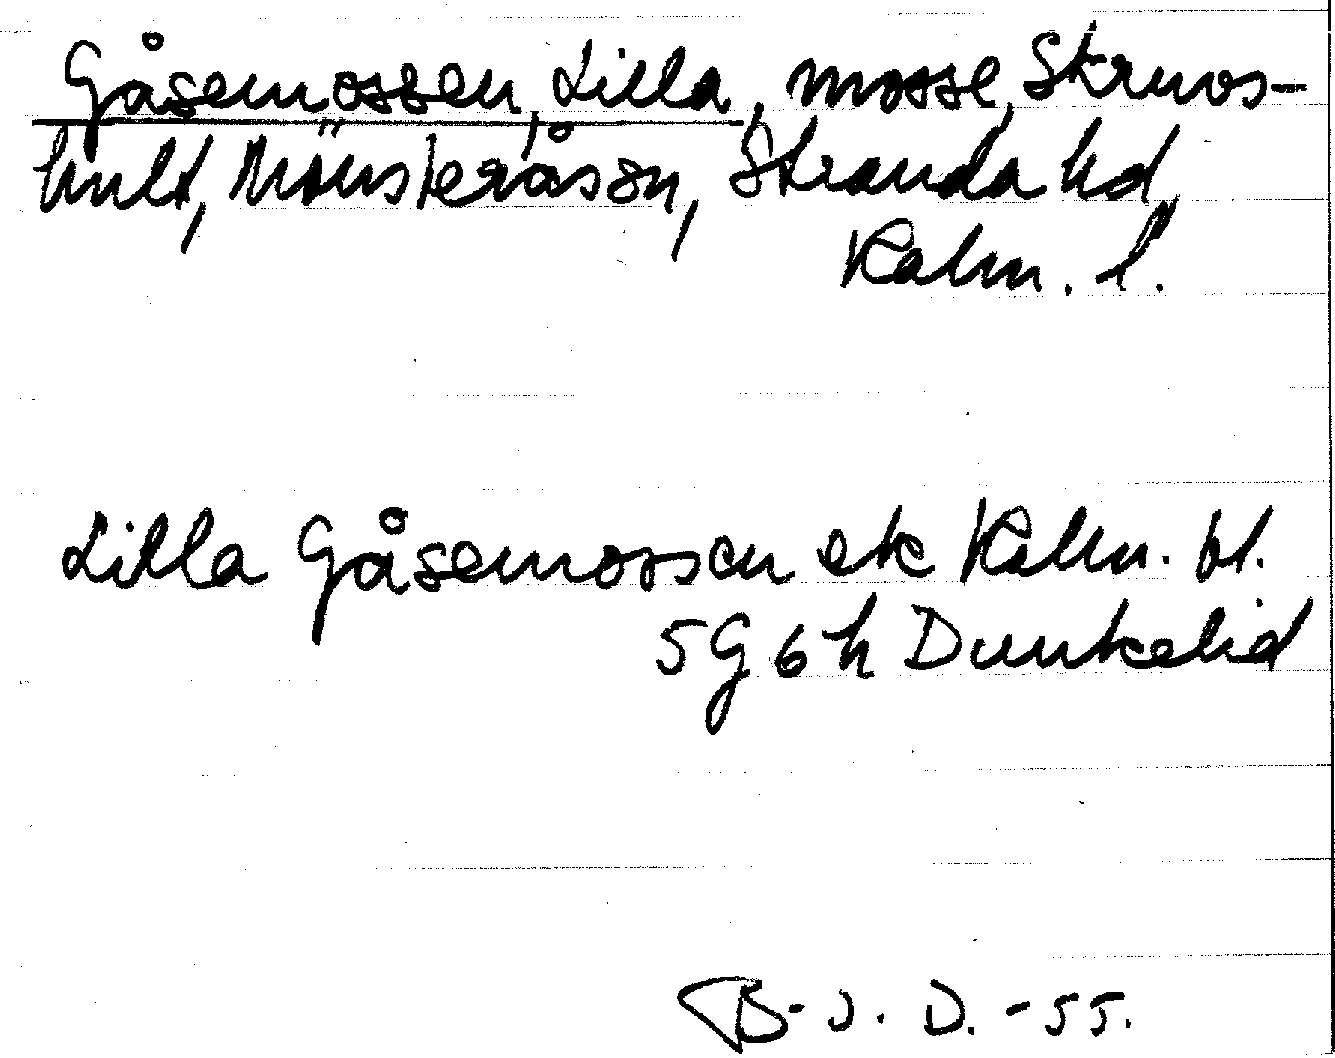 Gåsemossen, Lilla, mosse, Skruvs-
hult, Mönsterås sn, Stranda hd,
Kalm. l.
Lilla Gåsemossen ek Kalm. bl.
5G6h Dunkelid
B-J. D. -55.